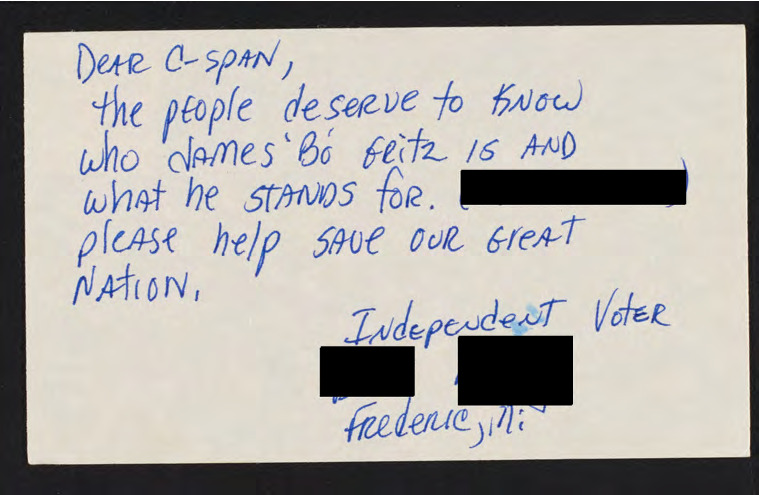 Dear C-SPAN,
the people deserve to know
who James 'Bo' Gritz is and
what he stands for. (
please help save our great
nation.
Independent Voter
Frederic, Mi.